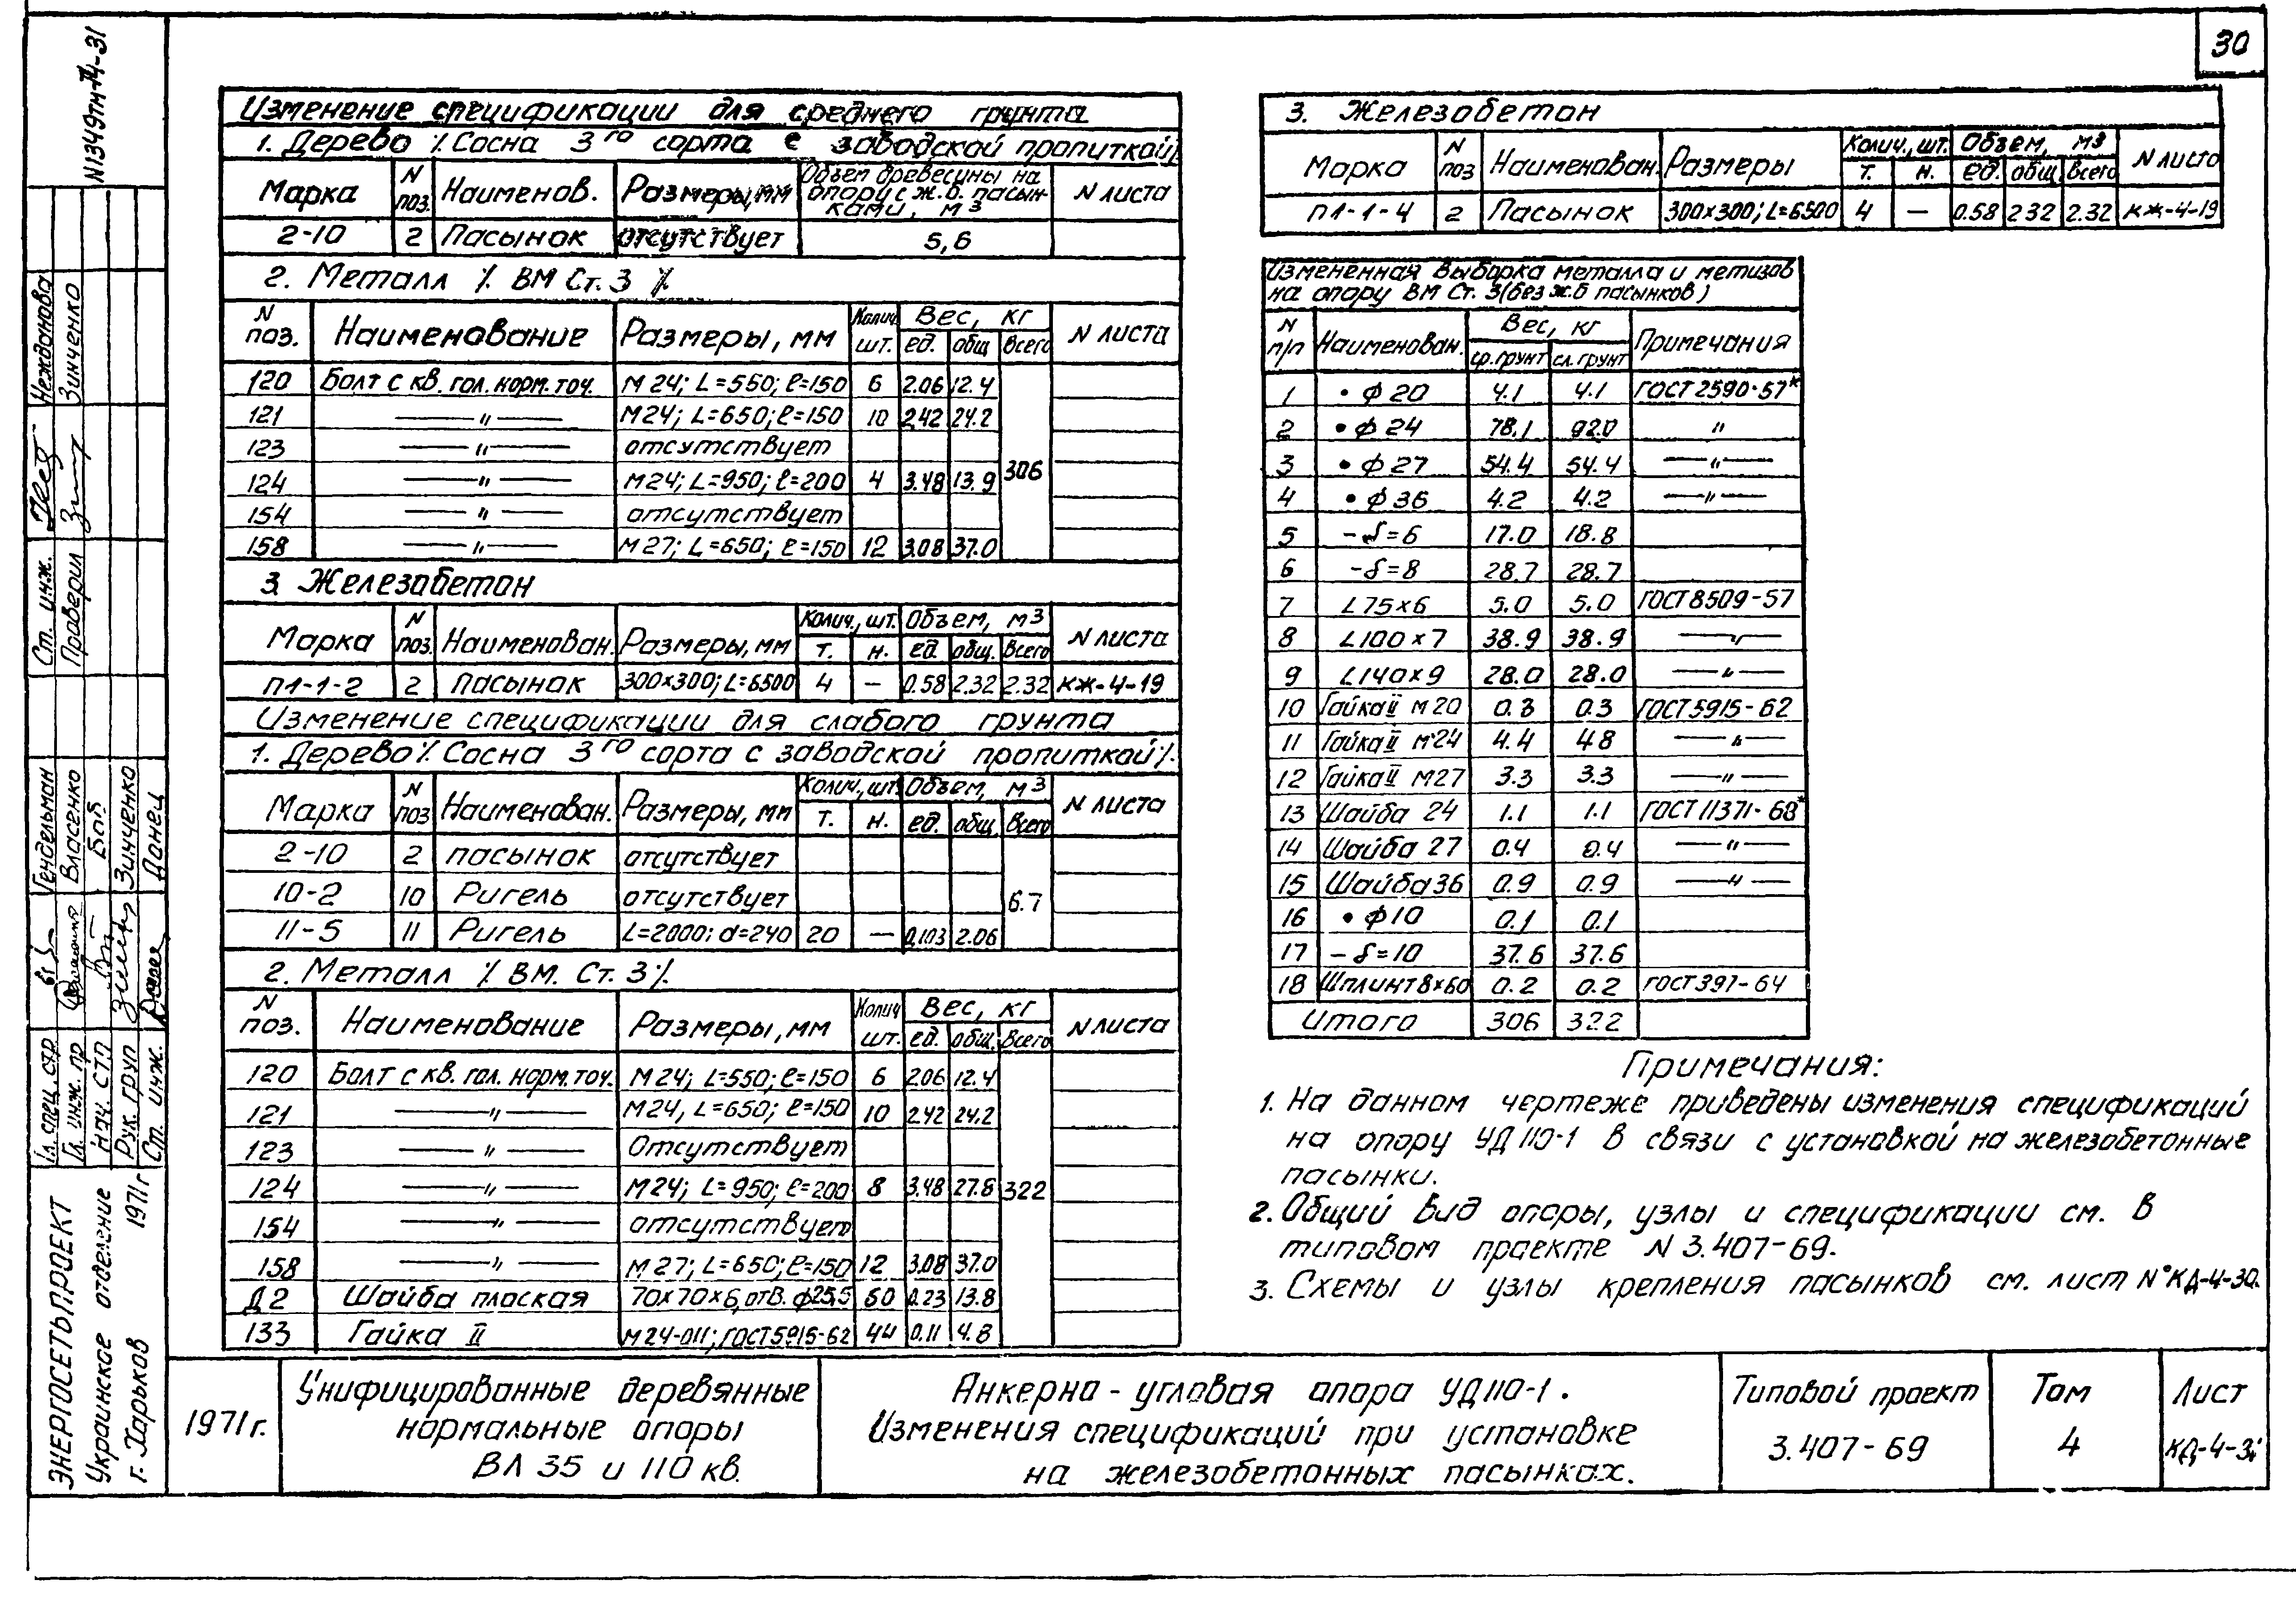 30
N1349тм-т4-31
Изменение спецификации для среднего грунта
1. Дерево ٪ Сосна 3го сорта с заводской пропиткой٪
Марка | N поз. | Наименов. | Размеры, мм | Объем древесины на опору с ж.б. пасынками, м3 | N листа
2-10 | 2 | Пасынок | отсутствует | 5,6
2. Металл ٪ ВМ Ст. 3 ٪
N поз. | Наименование | Размеры, мм | Колич. шт. | Вес, кг | ед. | общ. | Всего | N листа
120 | Болт с кв. гол. норм. точ. | М24; L=550; ℓ=150 | 6 | 2.06 | 12.4
121 | —"— | М24; L=650; ℓ=150 | 10 | 2.42 | 24.2
123 | —"— | отсутствует
306
124 | —"— | М24; L=950; ℓ=200 | 4 | 3.48 | 13.9
154 | —"— | отсутствует
158 | —"— | М27; L=650; ℓ=150 | 12 | 3.08 | 37.0
3. Железобетон
Марка | N поз. | Наименован. | Размеры, мм | Колич., шт. | т. | н. | Объем, м3 | ед. | общ. | Всего | N листа
п1-1-2 | 2 | пасынок | 300х300; L=6500 | 4 | — | 0.58 | 2.32 | 2.32 | КЖ-4-19
Изменение спецификации для слабого грунта
1. Дерево ٪ Сосна 3го сорта с заводской пропиткой ٪.
Марка | N поз | Наименован. | Размеры, мм | Колич., шт. | т. | н. | Объем, м3 | ед. | общ. | Всего | N листа
2-10 | 2 | пасынок | отсутствует
10-2 | 10 | Ригель | отсутствует | 6.7
11-5 | 11 | Ригель | L=2000; d=240 | 20 | — | 0,103 | 2.06
2. Металл ٪ ВМ. Ст. 3 ٪.
N поз. | Наименование | Размеры, мм | Колич шт. | Вес, кг | ед. | общ. | Всего | N листа
120 | Болт с кв. гол. норм. точ. | М24; L=550; ℓ=150 | 6 | 2.06 | 12.4
121 | —"— | М24, L=650; ℓ=150 | 10 | 2.42 | 24.2
123 | —"— | Отсутствует
124 | —"— | М24; L=950; ℓ=200 | 8 | 3.48 | 27.8 | 322
154 | —"— | отсутствует
158 | —"— | М27; L=650; ℓ=150 | 12 | 3.08 | 37.0
Д2 | Шайба плоская | 70х70х6, отв. ф25,5 | 60 | 0.23 | 13.8
133 | Гайка II | М24-011; ГОСТ5915-62 | 44 | 0.11 | 4.8
3. Железобетон
Марка | N поз | Наименован. | Размеры | Колич., шт. | т. | н. | Объем, м3 | ед. | общ. | Всего | N листа
п1-1-4 | 2 | Пасынок | 300х300; L=6500 | 4 | — | 0.58 | 2 32 | 2.32 | КЖ-4-19
Измененная выборка металла и метизов
на опору ВМ Ст. 3 (без ж.б пасынков)
N п/п | Наименован. | Вес, кг | ср. грунт | сл. грунт | Примечания
1 | • ф20 | 4.1 | 4.1 | ГОСТ 2590-57*
2 | • ф24 | 78.1 | 92.0 | "
3 | • ф27 | 54.4 | 54.4 | —"—
4 | • ф36 | 4.2 | 4.2 | —"—
5 | -δ=6 | 17.0 | 18.8
6 | -δ=8 | 28.7 | 28.7
7 | L75х6 | 5.0 | 5.0 | ГОСТ 8509-57
8 | L100х7 | 38.9 | 38.9 | —"—
9 | L140х9 | 28.0 | 28.0 | —"—
10 | Гайка II М20 | 0.3 | 0.3 | ГОСТ 5915-62
11 | Гайка II М24 | 4.4 | 4.8 | —"—
12 | Гайка II М27 | 3.3 | 3.3 | —"—
13 | Шайба 24 | 1.1 | 1.1 | ГОСТ 11371-68*
14 | Шайба 27 | 0.4 | 0.4 | —"—
15 | Шайба 36 | 0.9 | 0.9 | —"—
16 | • ф10 | 0.1 | 0.1
17 | -δ=10 | 37.6 | 37.6
18 | Шплинт 8х60 | 0.2 | 0.2 | ГОСТ 397-64
Итого | 306 | 322
Примечания:
1. На данном чертеже приведены изменения спецификаций
на опору УД110-1 в связи с установкой на железобетонные
пасынки.
2. Общий вид опоры, узлы и спецификации см. в
типовом проекте N 3.407-69.
3. Схемы и узлы крепления пасынков см. лист N°КД-4-30.
Ст. инж. Нежданова
Проверил Зинченко
Гл. спец. стр. Гендельман
Гл. инж. пр Власенко
Нач. СТП
Рук. груп Зинченко
Ст. инж. Данец
ЭНЕРГОСЕТЬПРОЕКТ
Украинское отделение
г. Харьков 1971г
1971г.
Унифицированные деревянные
нормальные опоры
ВЛ 35 и 110 кв.
Анкерно-угловая опора УД110-1.
Изменения спецификаций при установке
на железобетонных пасынках.
Типовой проект
3.407-69
Том
4
Лист
КД-4-31